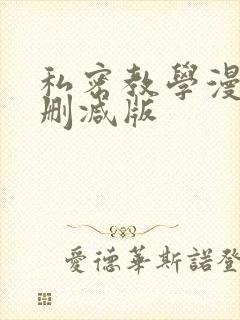 私密教學漫
刪減版
愛德華斯諾登